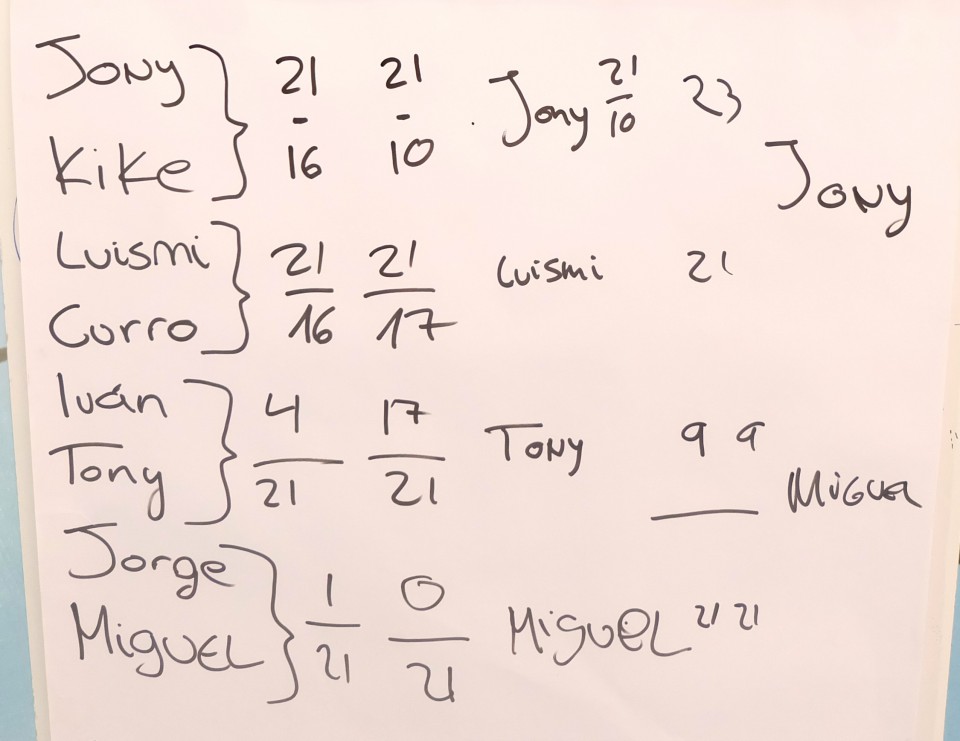 Jony } 21 21 Jony 21 23
- - - 
Kike } 16 10 10
Jony
Luismi } 21 21 Luismi 21
Curro } 16 17
Iván } 4 17
Tony } 21 21 Tony 9 9
Miguel
Jorge } 1 0
Miguel } 21 21 Miguel 21 21